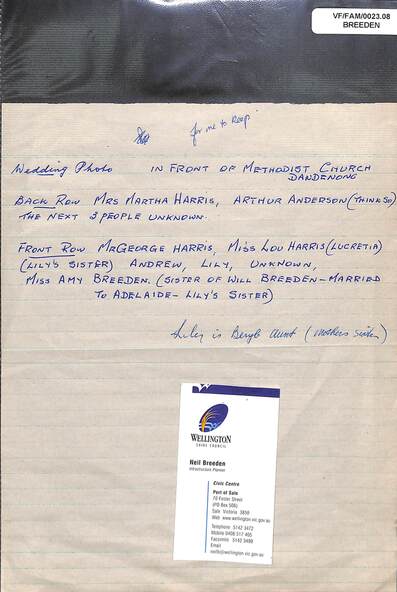 VF/FAM/0023.08
BREEDEN
for me to keep
WEDDING PHOTO IN FRONT OF METHODIST CHURCH
DANDENONG
BACK ROW MRS MARTHA HARRIS, ARTHUR ANDERSON (THINK SO)
THE NEXT 3 PEOPLE UNKNOWN.
FRONT ROW MR GEORGE HARRIS, MISS LOU HARRIS (LUCRETIA)
(LILY'S SISTER) ANDREW, LILY, UNKNOWN,
MISS AMY BREEDEN. (SISTER OF WILL BREEDEN-MARRIED
TO ADELAIDE- LILY'S SISTER)
Liley is Beryls Aunt (mothers sister)
WELLINGTON
SHIRE COUNCIL
Neil Breeden
Infrastructure Planner
Civic Centre
Port of Sale
70 Foster Street
(PO Box 506)
Sale Victoria 3850
Web www.wellington.vic.gov.au
Telephone 5142 3472
Mobile 0408 517 405
Facsimile 5142 3499
Email
neilb@wellington.vic.gov.au